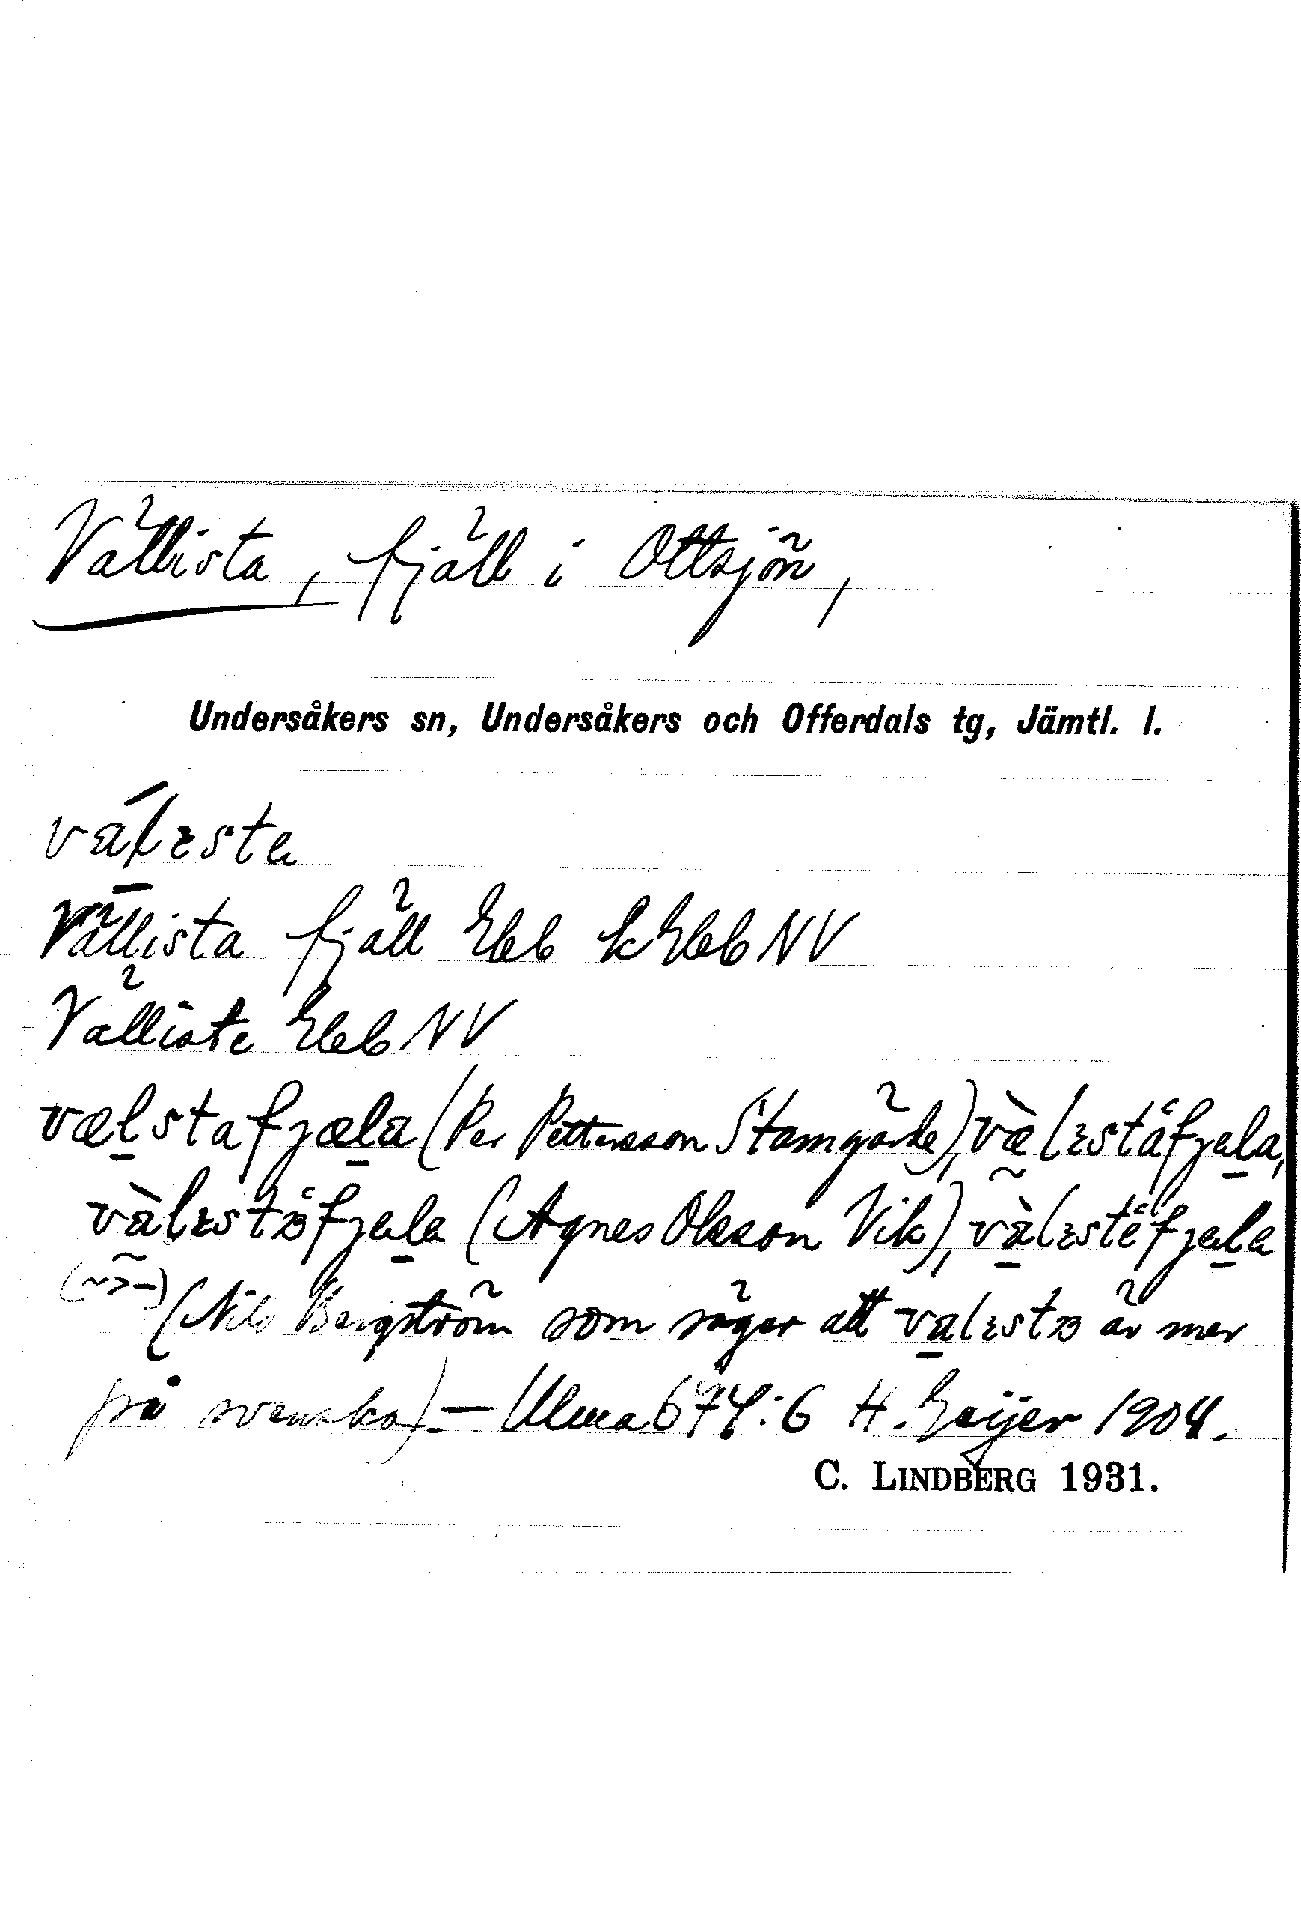 Vällista, fjäll i Ottsjön,
Undersåkers sn, Undersåkers och Offerdals tg, Jämtl. l.
välɪsta
Vällista fjäll Ekb kEkbNV
Välliste EkbNV
vælstafjæla (Per Pettersson Stamgärde), vælɪståfjæla,
vàlɪstɞfjæla (Agnes Olsson Vik), vàlɪstëfjæla
(~>–) (Nils Bergström som säger att valɪstɞ är mer
på svenska) – Ulma 674:6 H. Geijer 1904.
C. LINDBERG 1931.